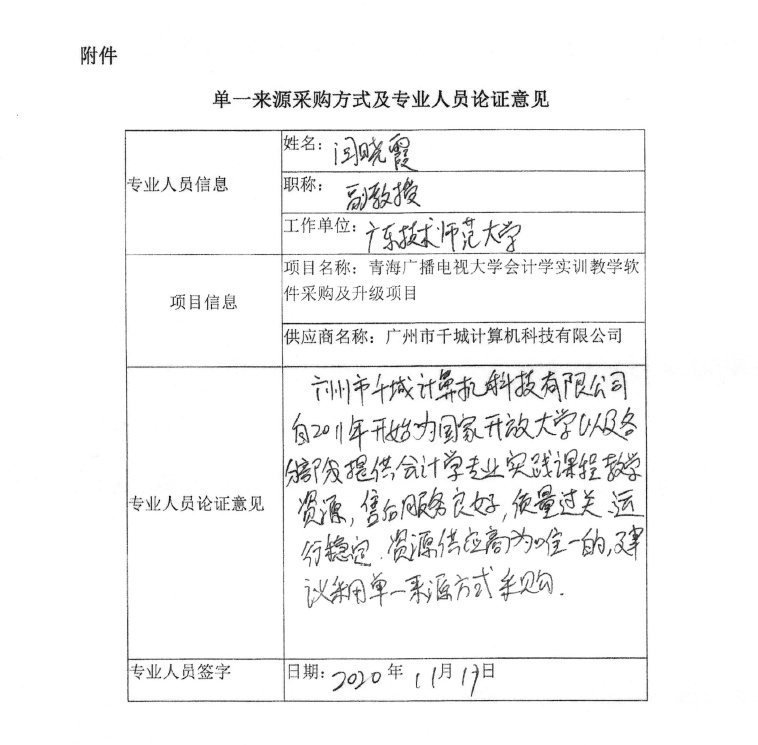 附件
单一来源采购方式及专业人员论证意见
专业人员信息
姓名：闫晓霞
职称：副教授
工作单位：广东技术师范大学
项目信息
项目名称：青海广播电视大学会计学实训教学软
件采购及升级项目
供应商名称：广州市千城计算机科技有限公司
专业人员论证意见
广州市千城计算机科技有限公司
自2011年开始为国家开放大学以及各
分部及提供会计学专业实践课程教学
资源，售后服务良好，质量过关、运
行稳定、资源供应商为唯一的，建
议采用单一来源方式采购.
专业人员签字
日期：2020年11月17日